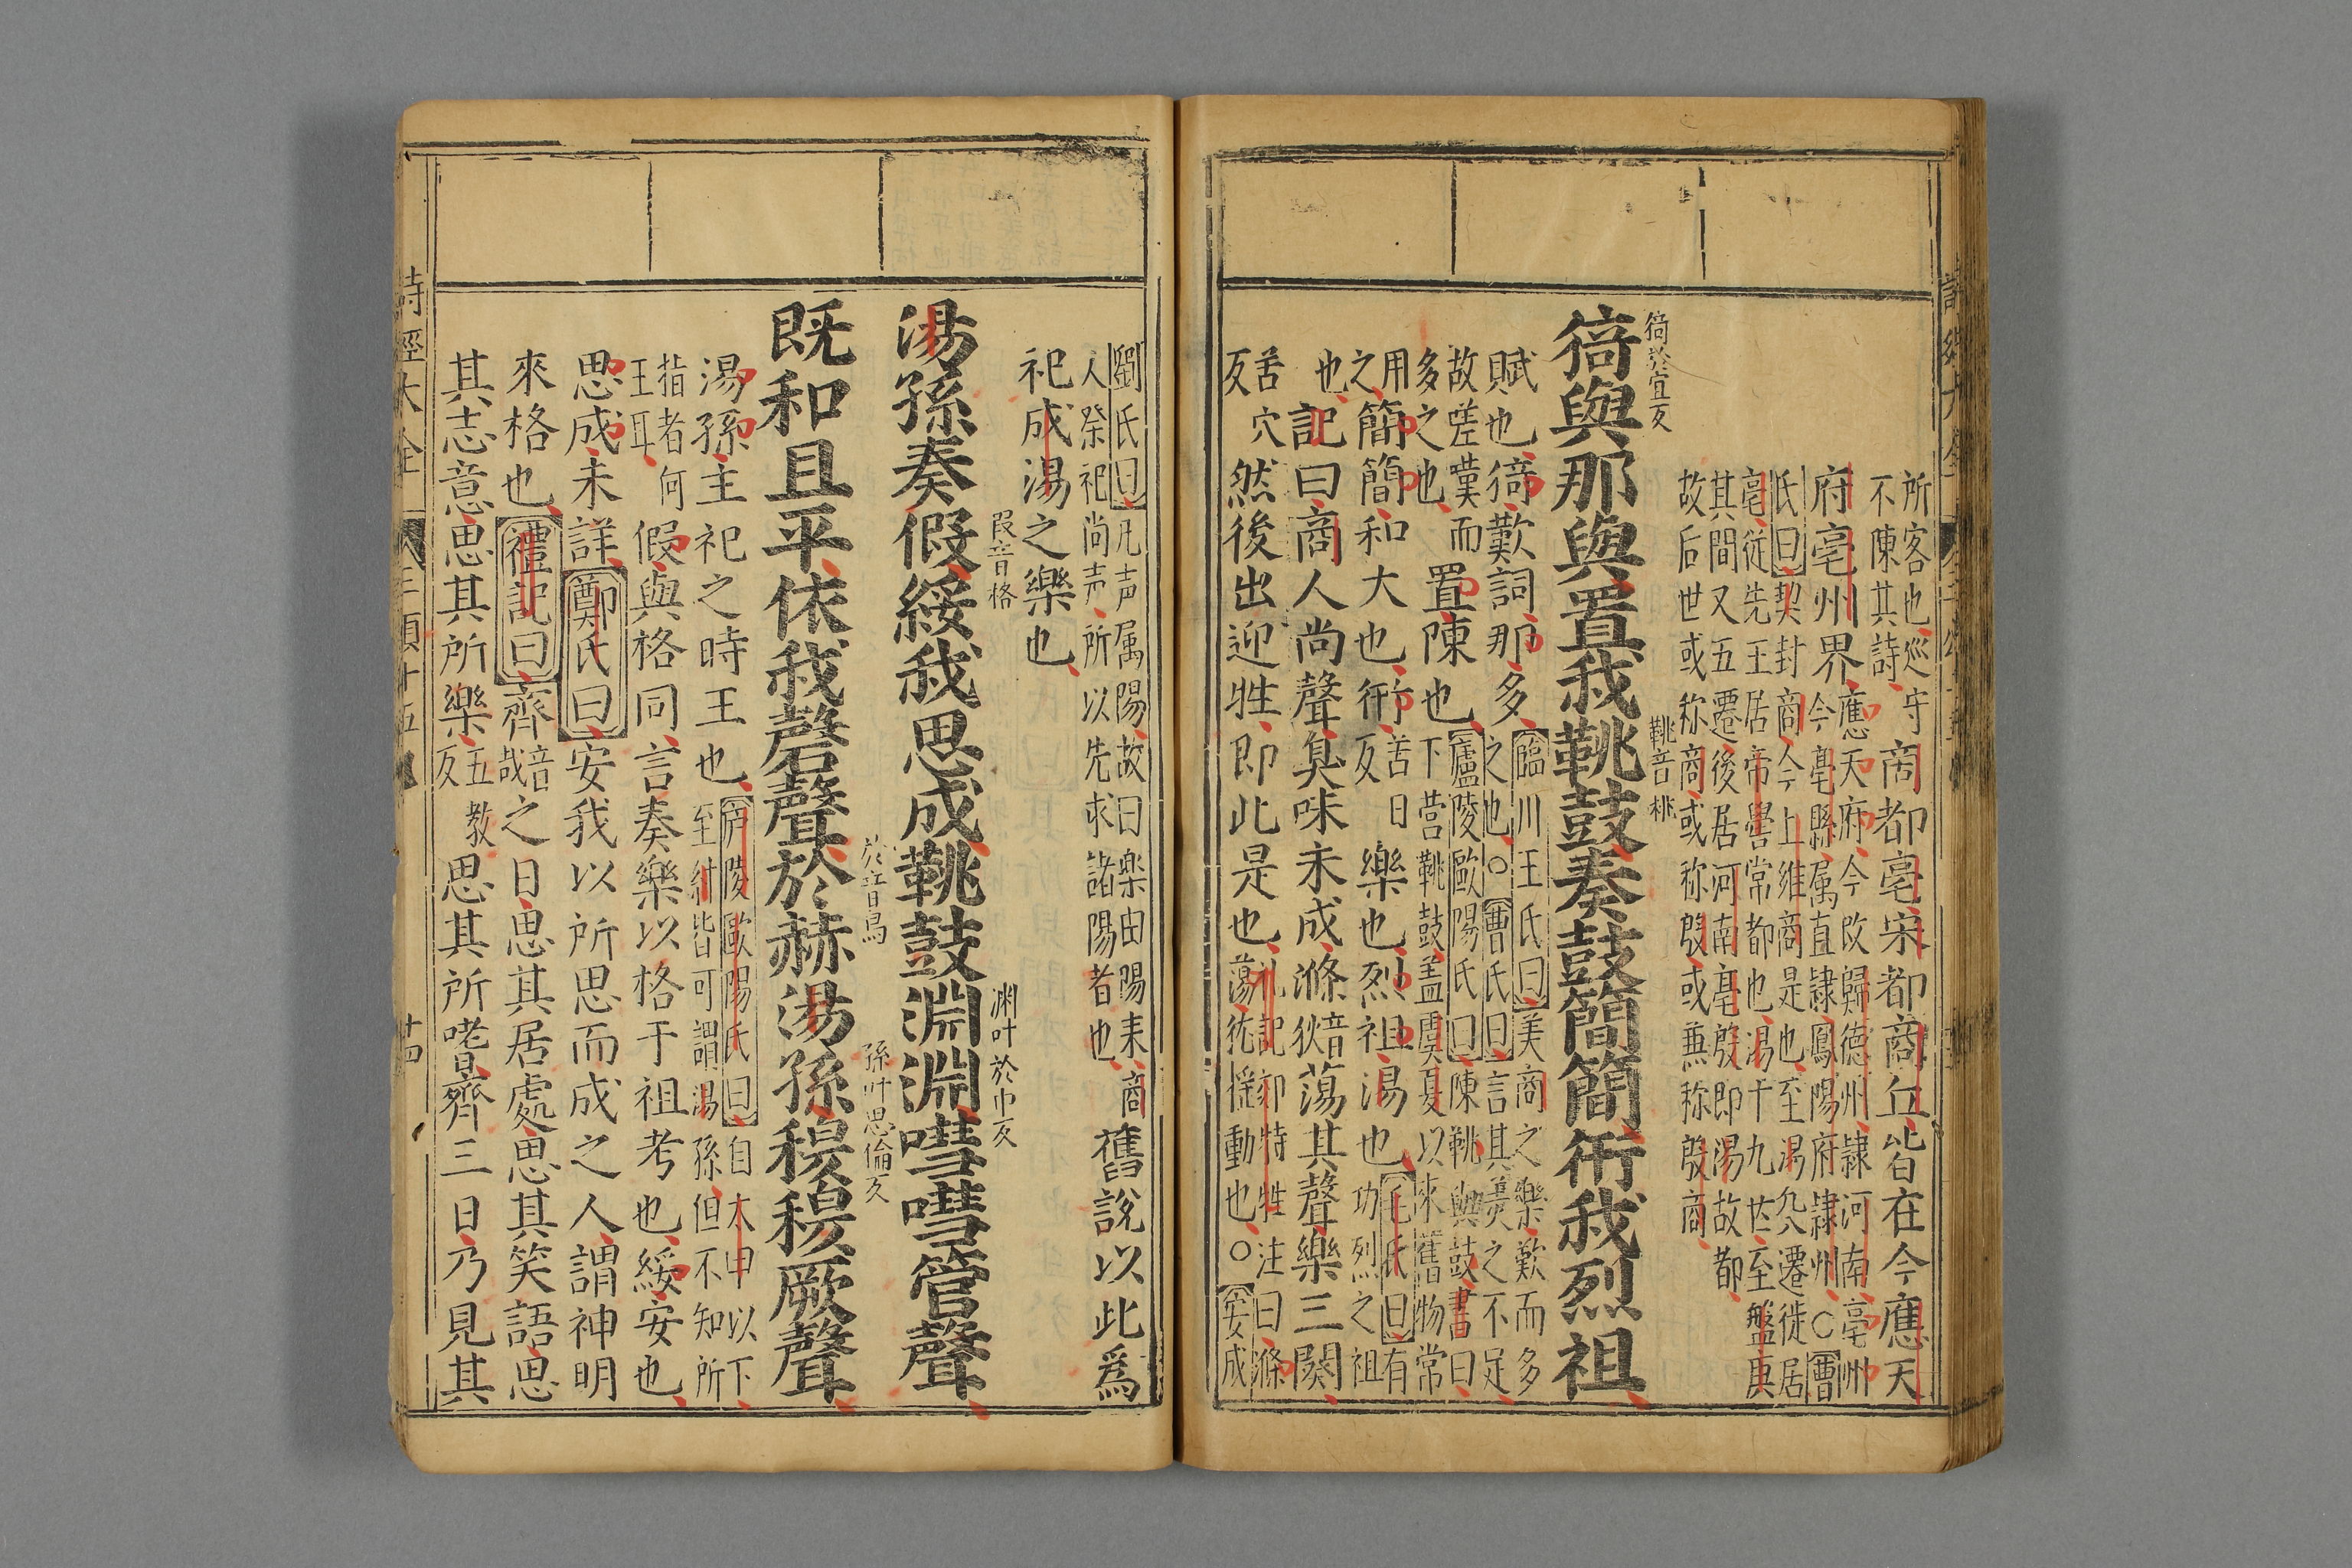 所客也巡守
不陳其詩
商都亳宋都商丘皆在今應天
府亳州界
應天府今改歸德州隷河南亳州
今亳縣属直隷鳳陽府隷州○曹
氏曰契封商今上維商是也至湯八遷徙居
亳從先王居帝嚳常都也湯十九世至盤庚
其間又五遷後居河南亳殷即湯故都
故后世或称商或称殷或兼称殷商
猗於宜反
鞉音桃
猗與那與置我鞉鼓奏鼓簡簡衎我烈祖
賦也猗歎詞那多
臨川王氏曰美商之樂歎而多
之也○曹氏曰言其美之不足
故嗟嘆而
多之也
置陳也
廬陵歐陽氏曰陳鞉與鼓書曰
下莒鞉鼓盖虞夏以來舊物常
用
之
簡簡和大也衎
苦日
反
樂也烈祖湯也
毛氏曰有
功烈之祖
也
記曰商人尚聲臭味未成滌
音
狄
蕩其聲樂三闋
苦穴
反
然後出迎牲即此是也
礼記郊特牲注曰滌
蕩犹揺動也○安成
劉氏曰凡声属陽故曰樂由陽来商
人祭祀尚声所以先求諸陽者也
舊說以此爲
祀成湯之樂也
假音格
淵叶於巾反
湯孫奏假綏我思成鞉鼓淵淵嘒嘒管聲
於音烏
孫叶思倫反
既和且平依我磬聲於赫湯孫穆穆厥聲
湯孫主祀之時王也
庐陵歐陽氏曰自太甲以下
至紂皆可謂湯孫但不知所
指者何
王耳
假與格同言奏樂以格于祖考也綏安也
思成未詳鄭氏曰安我以所思而成之人謂神明
來格也禮記曰齊
音
哉
之日思其居處思其笑語思
其志意思其所樂
五教
反
思其所嗜齊三日乃見其
詩經大全
三頌十五
十四